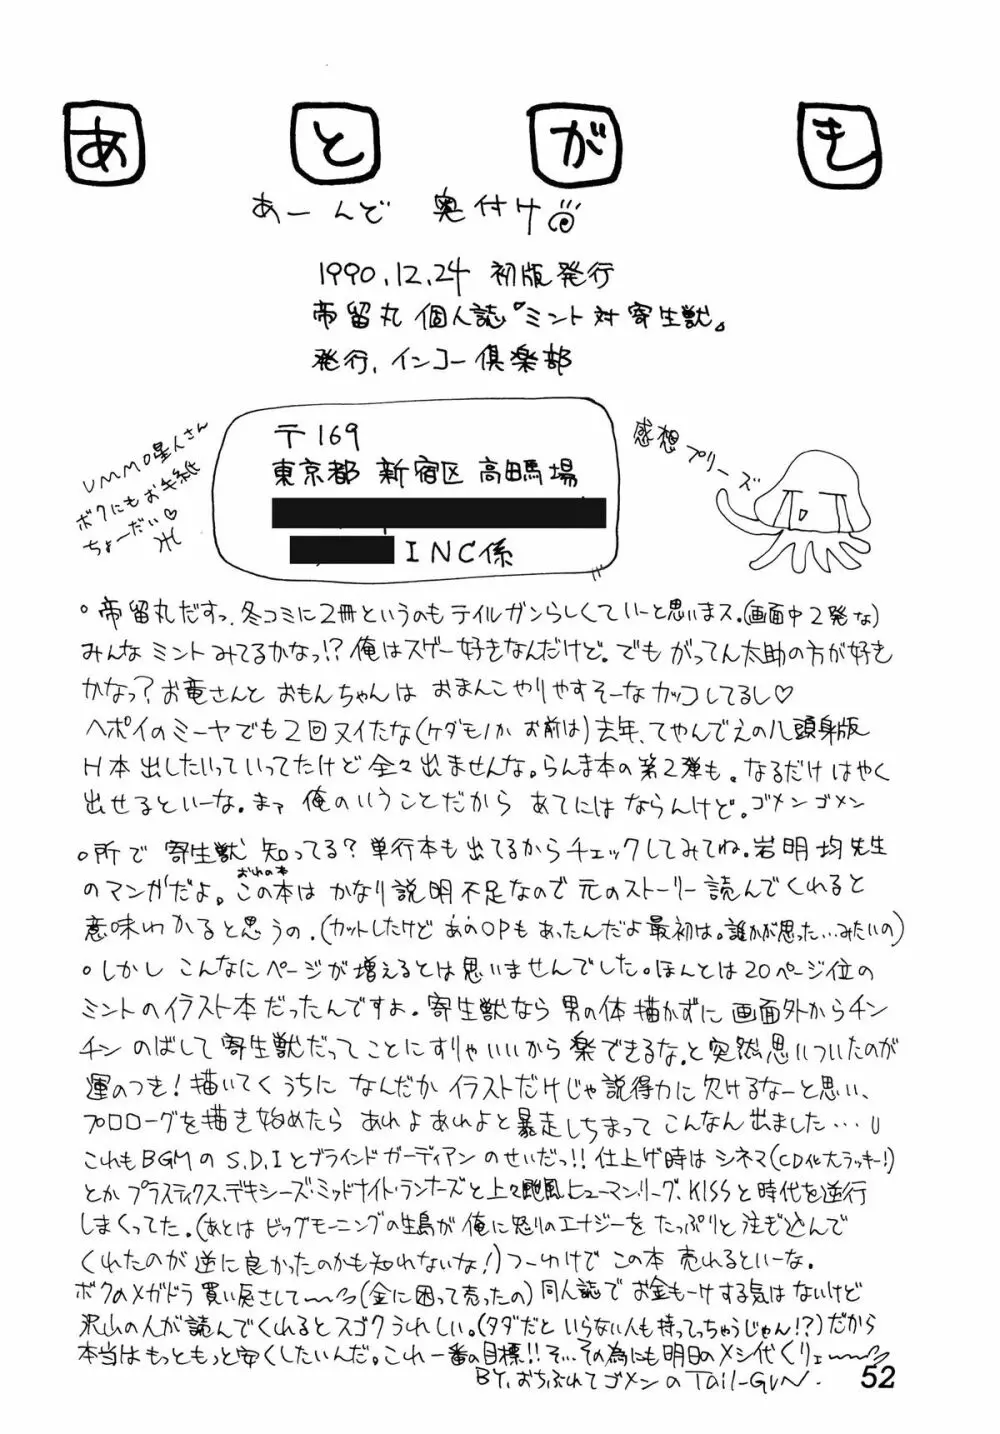 あとがき
あーんど 奥付け
1990.12.24 初版発行
帝留丸 個人誌『ミント対寄生獣』
発行、インコー倶楽部
UMMO星人さん
ボクにもお手紙
ちょーだい♡
〒169
東京都 新宿区 高田馬場
INC係
感想プリーズ
○帝留丸だすっ、冬コミに2冊というのもテイルガンらしくていーと思いまス。(画面中2発な)
みんなミントみてるかなっ!?俺はスゲー好きなんだけど。でもがってん太助の方が好き
かなっ?お竜さんとおもんちゃんはおまんこやりやすそーなカッコしてるし♡
ヘポイのミーヤでも2回ヌイたな(ケダモノかお前は)去年、てやんでえの八頭身版
H本出したいっていってたけど全々出ませんな。らんま本の第2弾も。なるだけはやく
出せるといーな。まァ俺のいうことだからあてにはならんけど。ゴメンゴメン
○所で寄生獣知ってる?単行本も出てるからチェックしてみてね。岩明均先生
のマンガだよ。この本はかなり説明不足なので元のストーリー読んでくれると
意味わかると思うの。(カットしたけどあのOPもあったんだよ最初は。誰かが思った…みたいの)
○しかしこんなにページが増えるとは思いませんでした。ほんとは20ページ位の
ミントのイラスト本だったんですよ。寄生獣なら男の体描かずに画面外からチン
チンのばして寄生獣だってことにすりゃいいから楽できるな。と突然思いついたのが
運のつき!描いてくうちになんだかイラストだけじゃ説得力に欠けるなーと思い、
プロローグを描き始めたらあれよあれよと暴走しちまってこんなん出ました…
これもBGMのS.D.Iとブラインドガーディアンのせいだっ!!仕上げ時はシネマ(CD化大ラッキー!)
とかプラスティクス、デキシーズ・ミッドナイト・ランナーズと上々颱風、ヒューマン・リーグ、KISSと時代を逆行
しまくってた。(あとはビッグモーニングの生島が俺に怒りのエナジーをたっぷりと注ぎ込んで
くれたのが逆に良かったのかも知れないな!)つーわけでこの本売れるといーな。
ボクのメガドラ買い戻さして(金に困って売ったの)同人誌でお金もーけする気はないけど
沢山の人が読んでくれるとスゴクうれしい。(タダだといらない人も持ってっちゃうじゃん!?)だから
本当はもっともっと安くしたいんだ。これ一番の目標!!そ…その為にも明日のメシ代くりェ
BY.おちぶれてゴメンのTail-GuN.
52